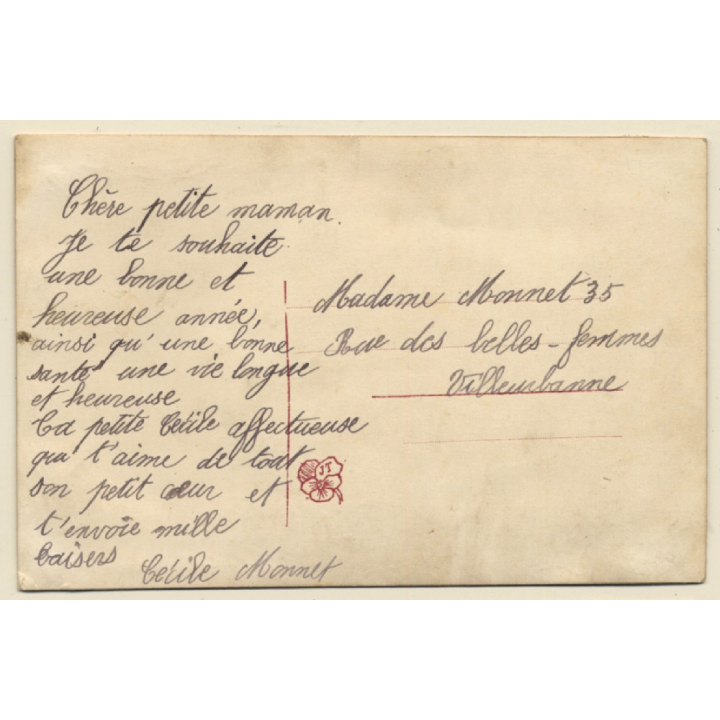 Chère petite maman.
Je te souhaite
une bonne et
heureuse année,
ainsi qu'une bonne
santé une vie longue
et heureuse
Ta petite Cécile affectueuse
qui t'aime de tout
son petit cœur et
t'envoie mille
baisers
Cécile Monnet
Madame Monnet 35
Rue des belles-femmes
Villeurbanne
JT